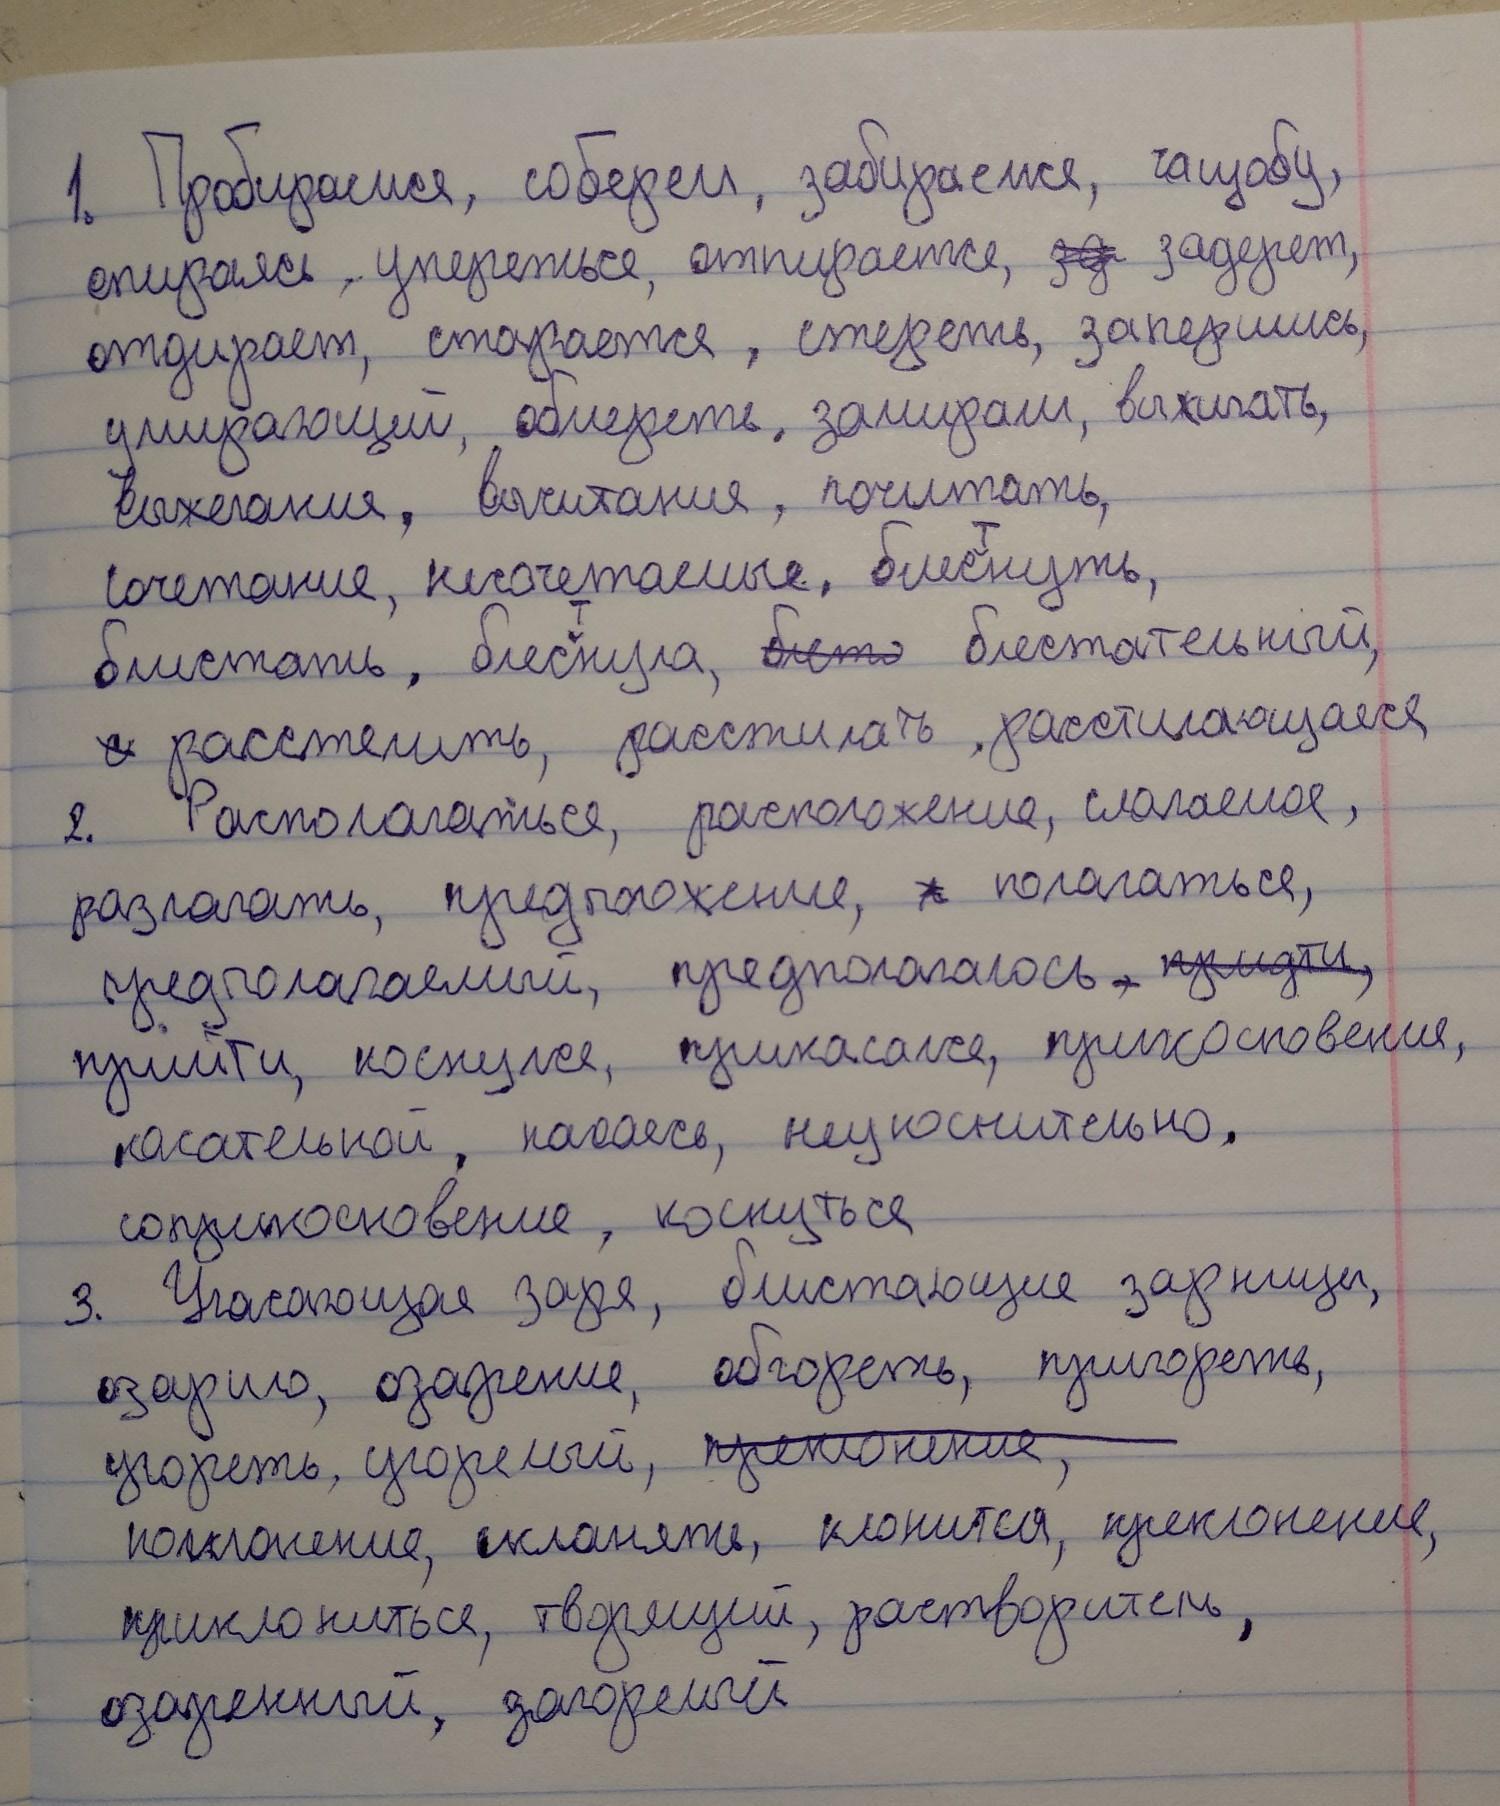 1. Пробираемся, соберем, забираемся, чащобу,
опираясь, упереться, отпирается, задерет,
отдирает, старается, стереть, запершись,
умирающий, обмереть, замирали, выжигать,
выжегания, вычитания, почитать,
сочетание, несочетаемые, блестнуть,
блистать, блестнула, блестательный,
расстелить, расстилать, расстилающаяся
2. Располагаться, расположение, слагаемое,
разлагать, предположение, полагаться,
предполагаемый, предполагалось, придти,
прийти, коснулся, прикасался, прикосновения,
касательной, касаясь, неукоснительно,
соприкосновение, коснуться
3. Угасающая заря, блистающие зарницы,
озарило, озарение, обгореть, пригореть,
угореть, угорелый, преклонение,
поклонение, склонять, клонится, преклонение,
приклониться, творящий, растворитель,
озаренный, загорелый